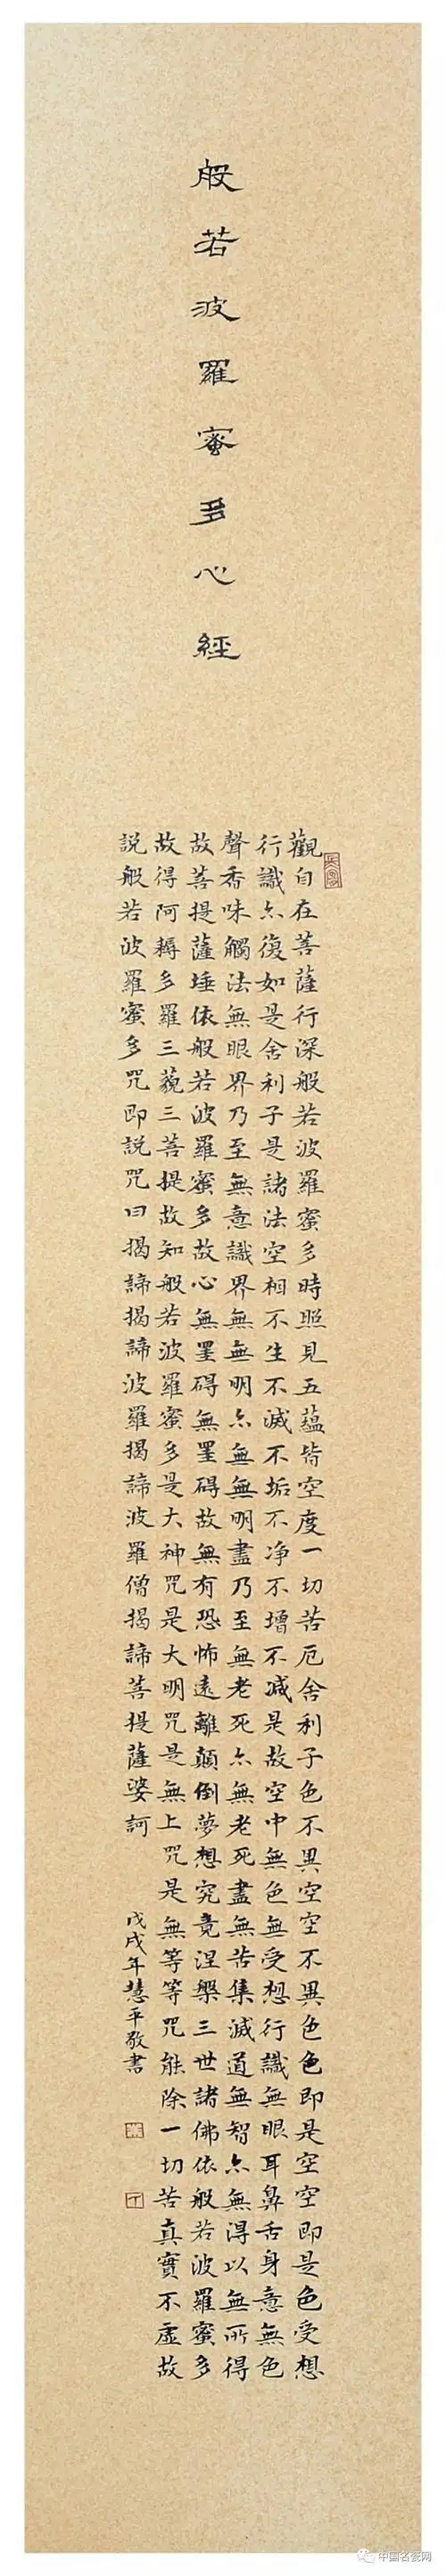 般若波羅蜜多心經
觀自在菩薩行深般若波羅蜜多時照見五蘊皆空度一切苦厄舍利子色不異空空不異色色即是空空即是色受想
行識亦復如是舍利子是諸法空相不生不滅不垢不净不增不减是故空中無色無受想行識無眼耳鼻舌身意無色
聲香味觸法無眼界乃至無意識界無無明亦無無明盡乃至無老死亦無老死盡無苦集滅道無智亦無得以無所得
故菩提薩埵依般若波羅蜜多故心無罣碍無罣碍故無有恐怖遠離顛倒夢想究竟涅槃三世諸佛依般若波羅蜜多
故得阿耨多羅三藐三菩提故知般若波羅蜜多是大神咒是大明咒是無上咒是無等等咒能除一切苦真實不虛故
説般若波羅蜜多咒即説咒曰揭諦揭諦波羅揭諦波羅僧揭諦菩提薩婆訶
戊戌年慧平敬書
中国名瓷网